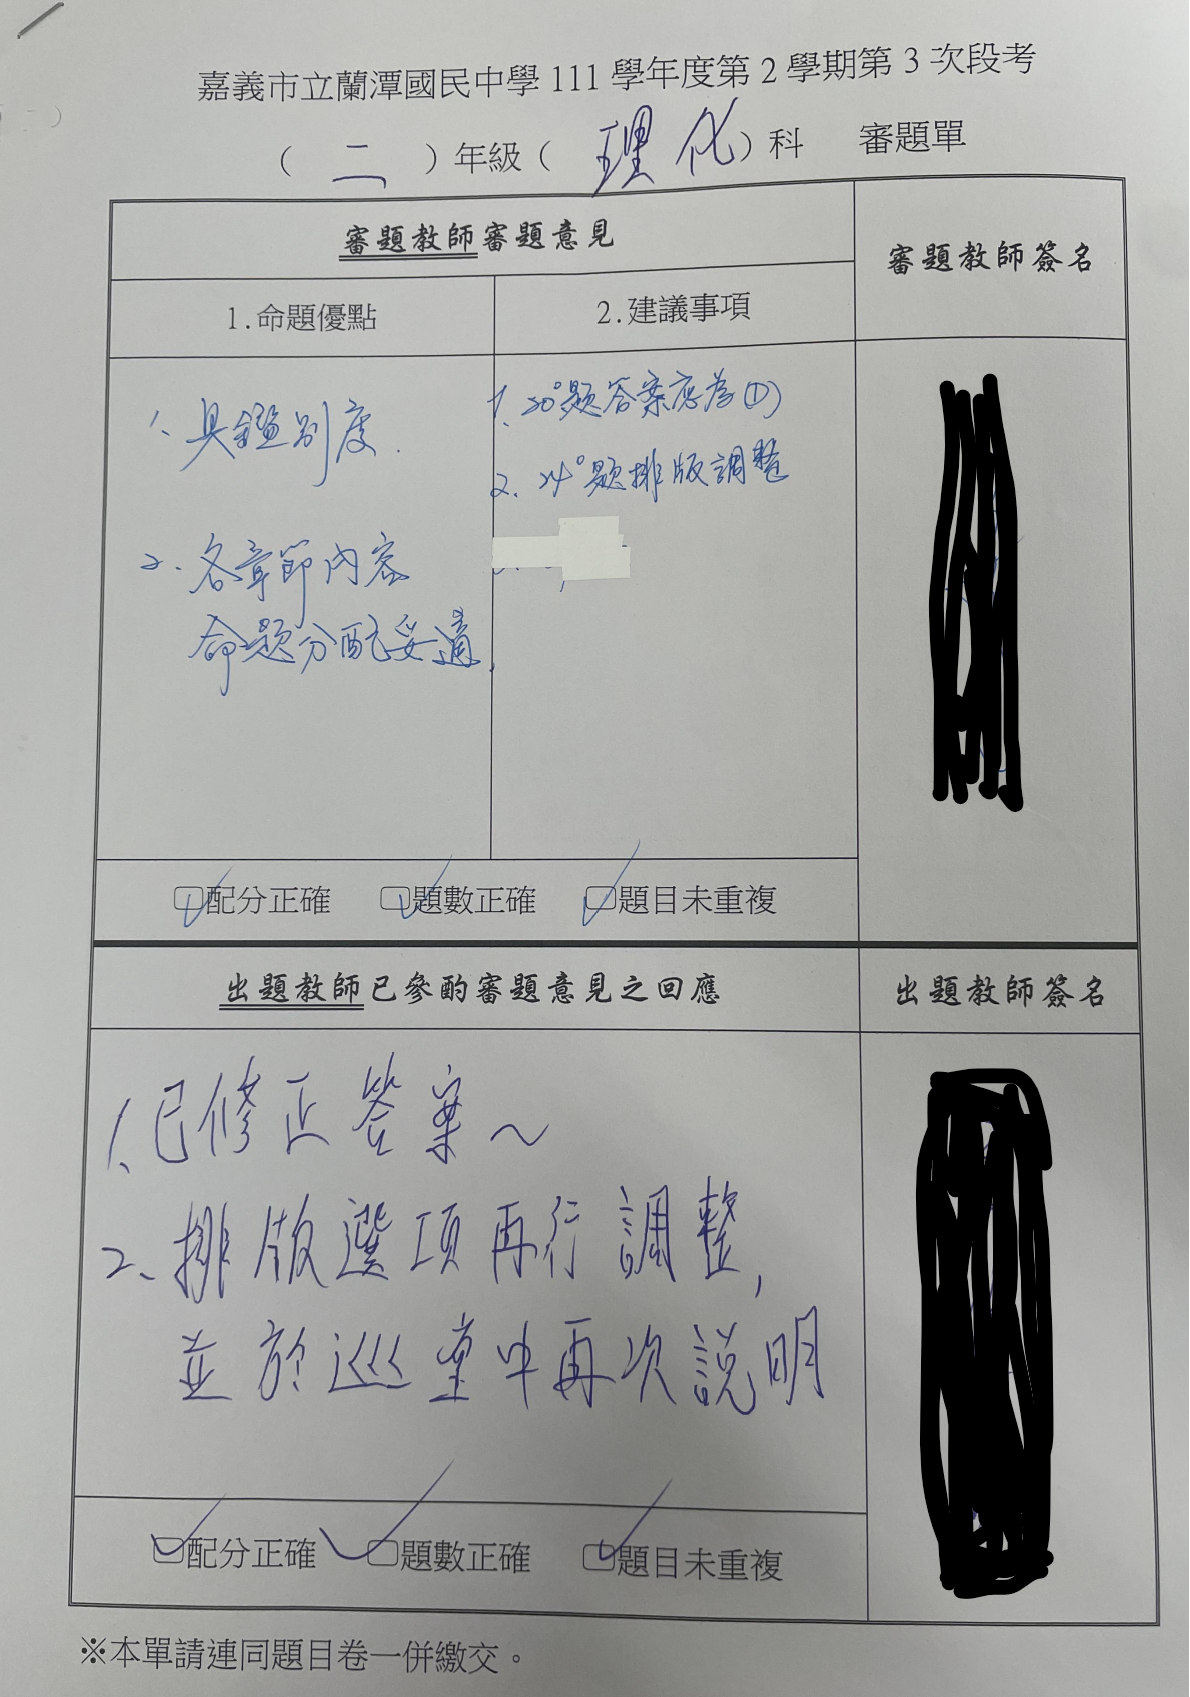 嘉義市立蘭潭國民中學 111 學年度第 2 學期第 3 次段考
（ 二 ）年級（ 理化 ）科 審題單
審題教師審題意見
審題教師簽名
1.命題優點
2.建議事項
1、具鑑別度.
2、各章節內容
命題分配妥適.
1、20°題答案應為(D)
2、24°題排版調整
配分正確 題數正確 題目未重複
出題教師已參酌審題意見之回應
出題教師簽名
1、已修正答案～
2、排版選項再行調整,
並於巡堂中再次說明
配分正確 題數正確 題目未重複
※本單請連同題目卷一併繳交。